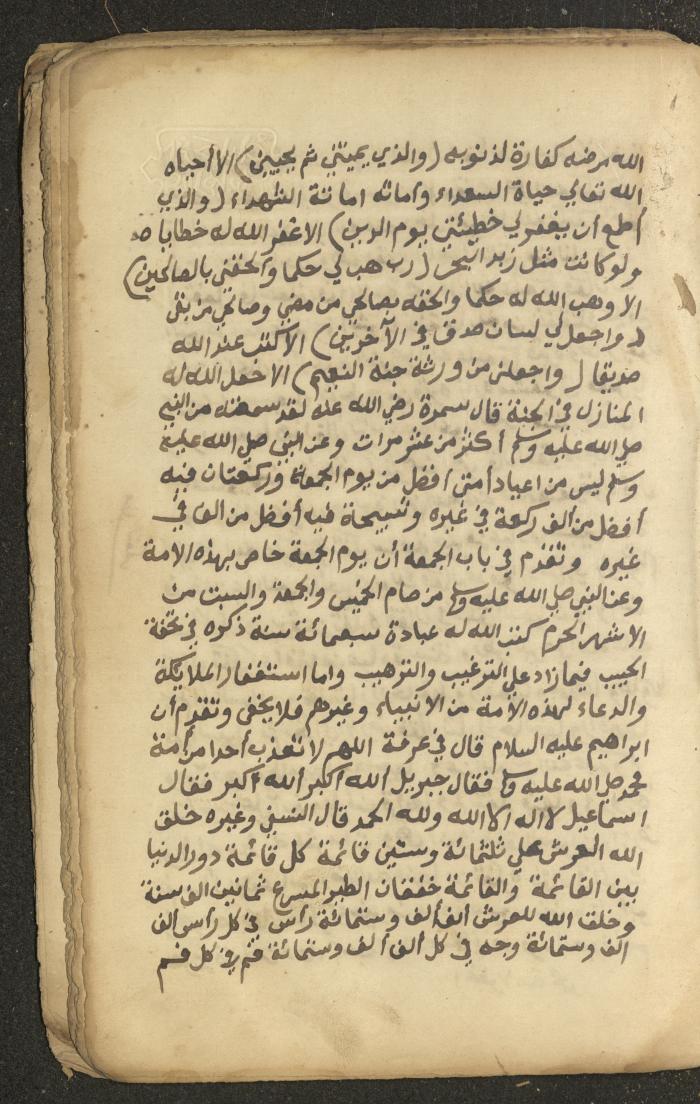 الله مرضه كفارة لذنوبه (والذي يميتني ثم يحيين) الا أحياه
الله تعالي حياة السعداء وأماته اماتة الشهداء (والذي
أطمع أن يغفر لي خطيئتي يوم الدين) الا غفر الله له خطاياه
ولو كانت مثل زبد البحر (رب هب لي حكما وألحقني بالصالحين)
الا وهب الله له حكما والحقه بصالحي من مضي وصالحي من بقي
(واجعل لي لسان صدق في الآخرين) الا كتب عند الله
صديقا (واجعلني من ورثة جنة النعيم) الا جعل الله له
المنازل في الجنة قال سمرة رضي الله عنه لقد سمعته من النبي
صلي الله عليه وسلم أكثر من عشر مرات وعن النبي صلي الله عليه
وسلم ليس من اعياد أمتي أفضل من يوم الجمعة وركعتان فيه
أفضل من ألف ركعة في غيره وتسبيحة فيه أفضل من الف في
غيره وتقدم في باب الجمعة أن يوم الجمعة خاص بهذه الامة
وعن النبي صلي الله عليه وسلم من صام الخميس والجمعة والسبت من
الاشهر الحرم كتب الله له عبادة سبعمائة سنة ذكره في تحفة
الحبيب فيما زاد علي الترغيب والترهيب واما استغفار الملايكة
والدعاء لهذه الأمة من الانبياء وغيرهم فلا يخفى وتقدم أن
ابراهيم عليه السلام قال في عرفة اللهم لا تعذب أحدا من أمة
محمد صلي الله عليه وسلم فقال جبريل الله أكبر الله أكبر فقال
اسماعيل لا اله الا الله ولله الحمد قال النسفي وغيره خلق
الله العرش علي ثلثمائة وستين قائمة كل قائمة دور الدنيا
بين القائمة والقائمة خفقان الطير المسرع ثمانين الف سنة
وخلق الله للعرش ألف ألف وستمائة رأس في كل رأس ألف
الف وستمائة وجه في كل ألف ألف وستمائة فم في كل فم